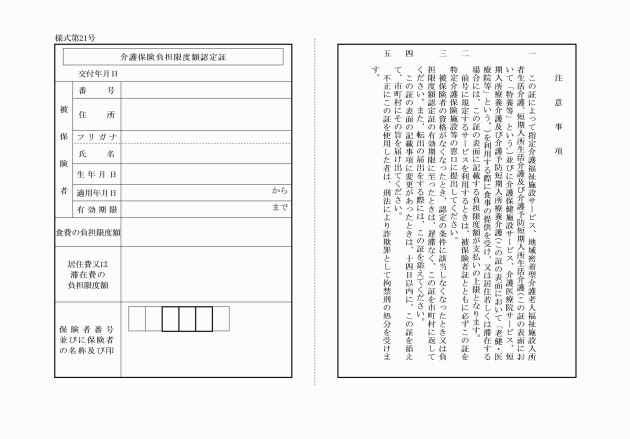 様式第21号
介護保険負担限度額認定証
交付年月日
被保険者
番号
住所
フリガナ
氏名
生年月日
適用年月日
から
有効期限
まで
食費の負担限度額
居住費又は
滞在費の
負担限度額
保険者番号
並びに保険者
の名称及び印
注意事項
一 この証によって指定介護福祉施設サービス、地域密着型介護老人福祉施設入所
者生活介護、短期入所生活介護及び介護予防短期入所生活介護(この証の表面にお
いて「特養等」という)並びに介護保健施設サービス、介護医療院サービス、短
期入所療養介護及び介護予防短期入所療養介護(この証の表面において「老健・医
療院等」という。)を利用する際に食事の提供を受け、又は居住若しくは滞在する
場合には、この証の表面に記載する負担限度額が支払いの上限となります。
二 前号に規定するサービスを利用するときは、被保険者証とともに必ずこの証を
特定介護保険施設等の窓口に提出してください。
三 被保険者の資格がなくなったとき、認定の条件に該当しなくなったとき又は負
担限度額認定証の有効期限に至ったときは、遅滞なく、この証を市町村に返して
ください。また、転出の届出をする際には、この証を添えてください。
四 この証の表面の記載事項に変更があったときは、十四日以内に、この証を添え
て、市町村にその旨を届け出てください。
五 不正にこの証を使用した者は、刑法により詐欺罪として拘禁刑の処分を受けま
す。